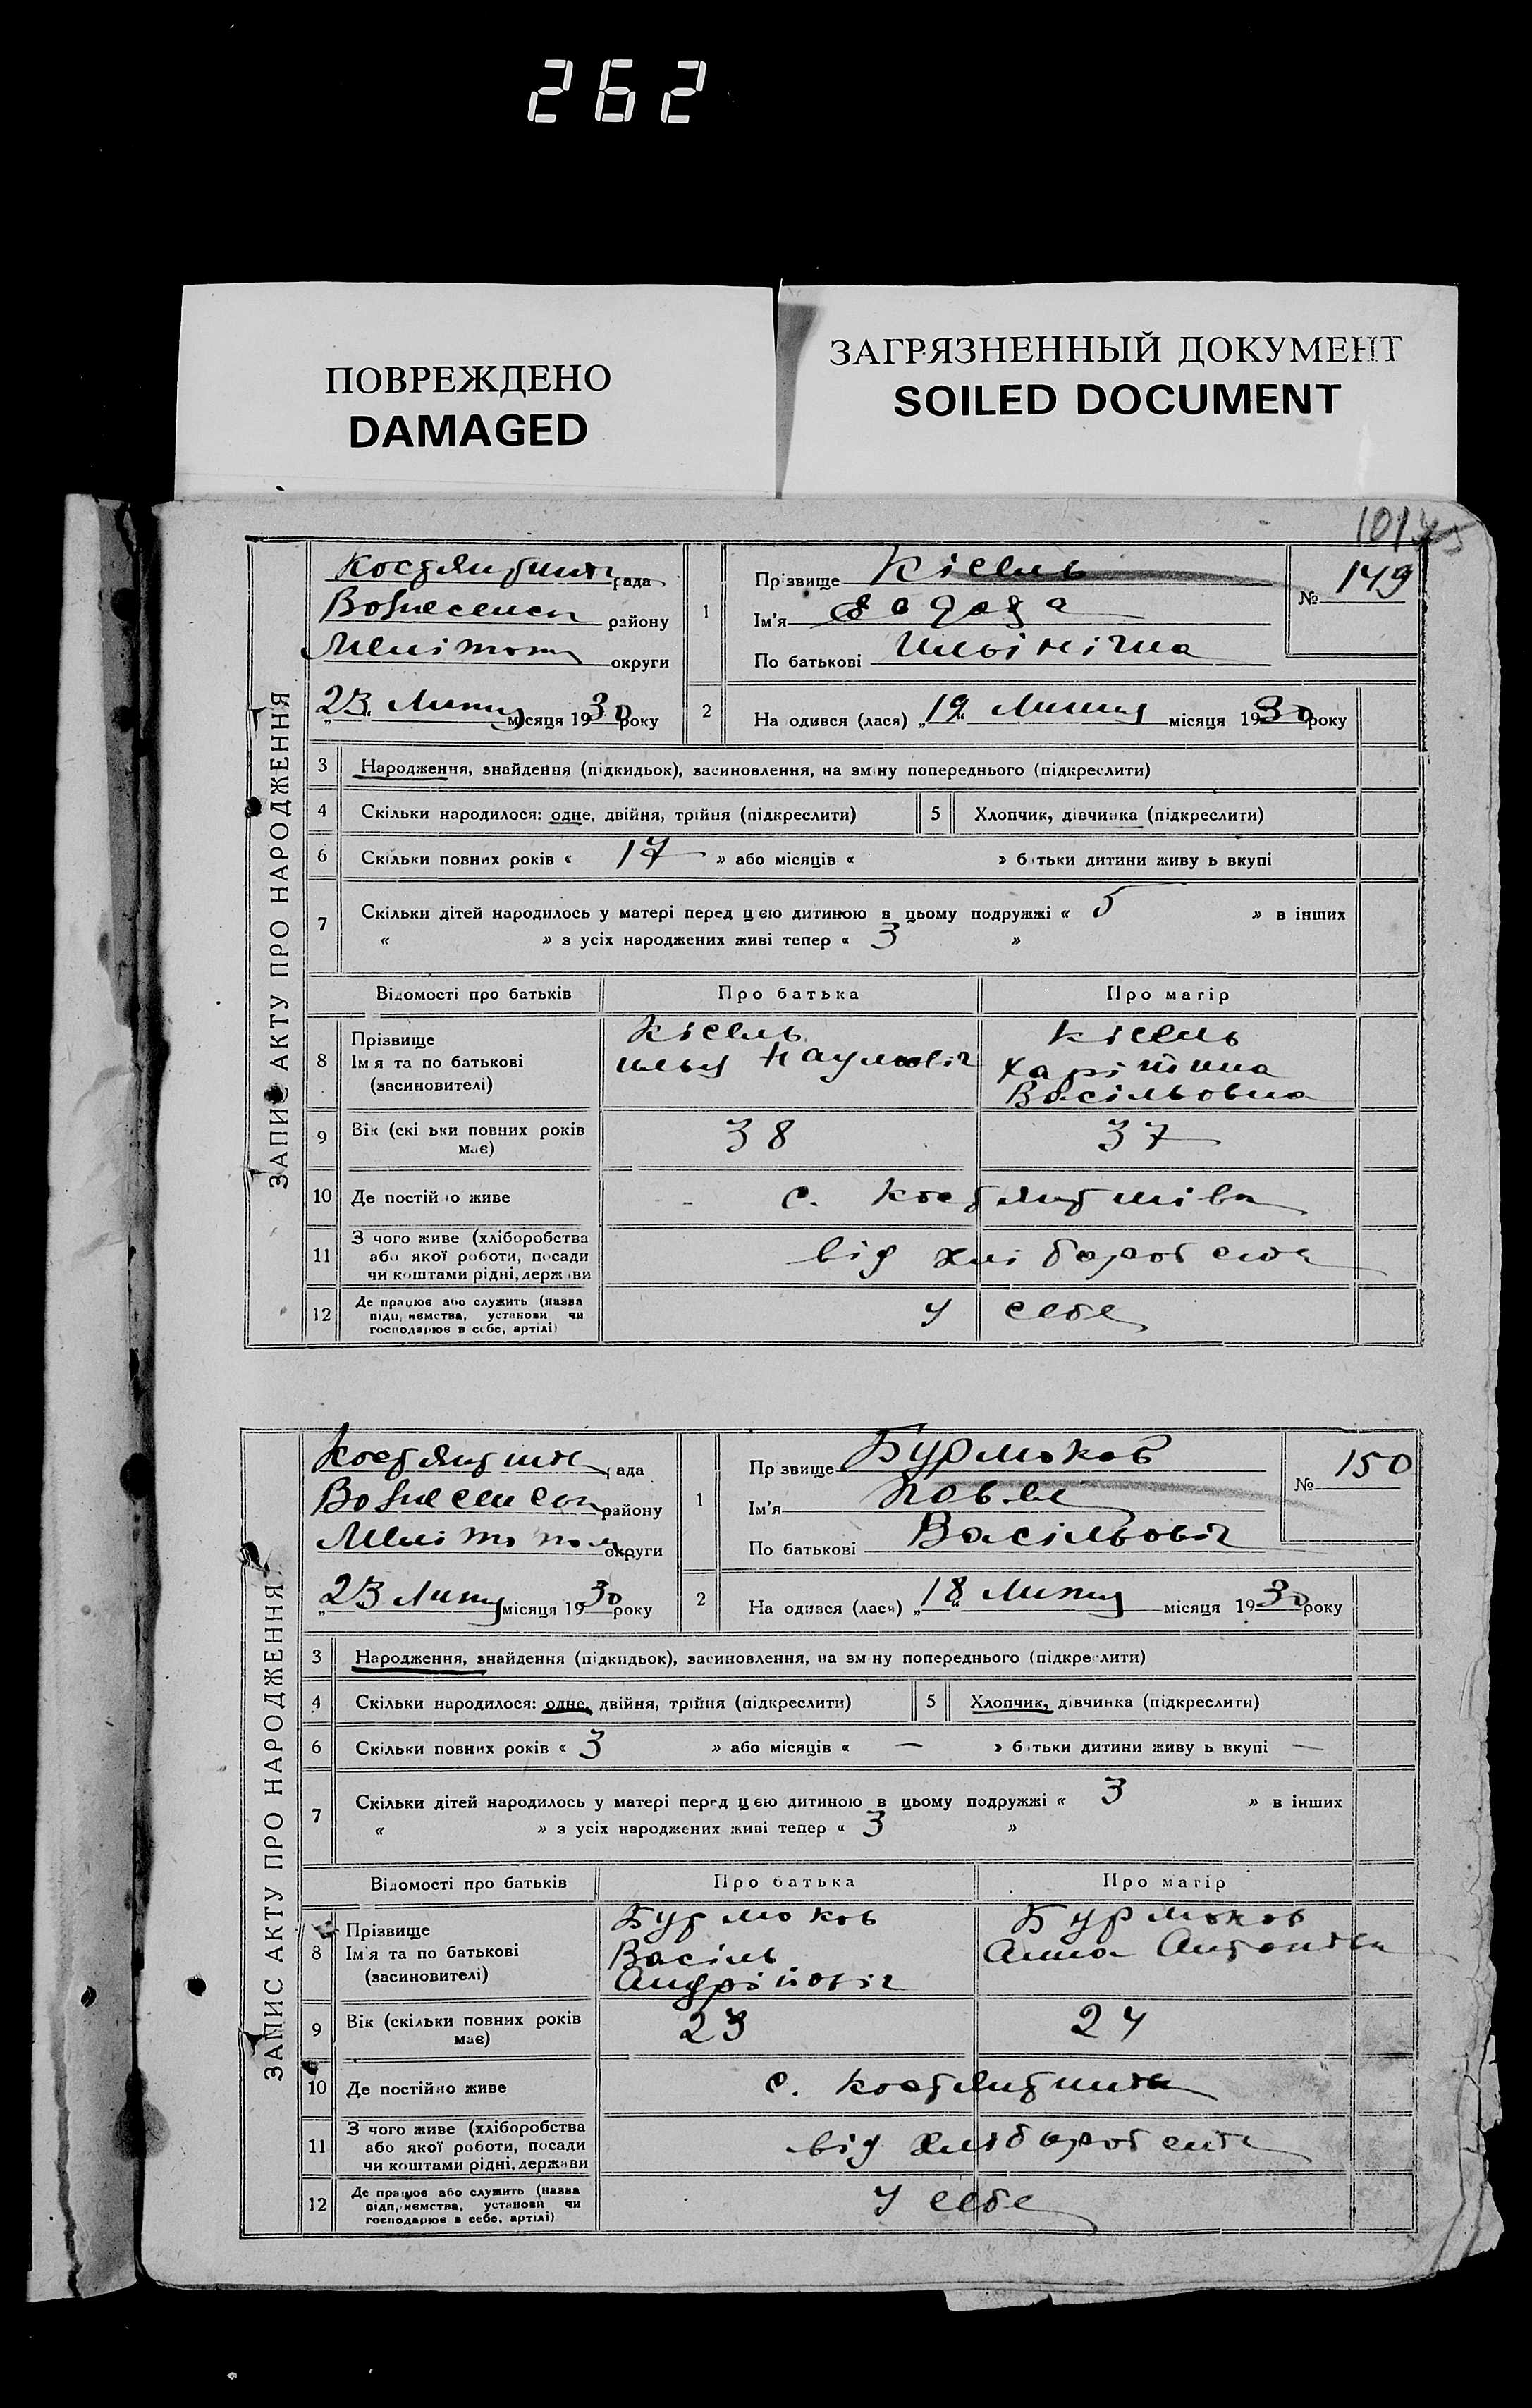 262
ПОВРЕЖДЕНО
DAMAGED
ЗАГРЯЗНЕННЫЙ ДОКУМЕНТ
SOILED DOCUMENT
101
ЗАПИС АКТУ ПРО НАРОДЖЕННЯ
рада
району
округи
23 Липня місяця 1930 року
1
Прізвище Кісель
Ім'я Євдокія
По батькові Ильінічна
№ 149
2
На одився (лася) „19“ Липня місяця 1930 року
3 Народження, знайдення (підкидьок), засиновлення, на зміну попереднього (підкреслити)
4 Скільки народилося: одне, двійня, трійня (підкреслити) 5 Хлопчик, дівчинка (підкреслити)
6 Скільки повних років « 17 » або місяців « » батьки дитини живу ь вкупі
7 Скільки дітей народилось у матері перед цією дитиною в цьому подружжі « 5 » в інших
« » з усіх народжених живі тепер « 3 »
Відомості про батьків Про батька Про матір
8 Прізвище Кісель Кісель
Ім'я та по батькові Илья Наумовіч Харітина
(засиновителі) Васільовна
9 Вік (скі ьки повних років має) 38 37
10 Де постійно живе с. Костянтинівка
11 З чого живе (хліборобства
або якої роботи, посади
чи коштами рідні, держави від хліборобства
12 Де працює або служить (назва
підприємства, установи чи
господарює в себе, артілі) у себе
ЗАПИС АКТУ ПРО НАРОДЖЕННЯ
рада
району
округи
23 Липня місяця 1930 року
1
Пр звище Бурмоков
Ім'я Павло
По батькові Васільовіч
№ 150
2
На одився (лася) „18“ Липня місяця 1930 року
3 Народження, знайдення (підкидьок), засиновлення, на зміну попереднього (підкреслити)
4 Скільки народилося: одне, двійня, трійня (підкреслити) 5 Хлопчик, дівчинка (підкреслити)
6 Скільки повних років « 3 » або місяців « — » батьки дитини живу ь вкупі —
7 Скільки дітей народилось у матері перед цією дитиною в цьому подружжі « 3 » в інших
« » з усіх народжених живі тепер « 3 »
Відомості про батьків Про батька Про матір
8 Прізвище Бурмоков Бурмоков
Ім'я та по батькові Васіль Анна
(засиновителі) Андрійовіч
9 Вік (скільки повних років має) 23 24
10 Де постійно живе с.
11 З чого живе (хліборобства
або якої роботи, посади
чи коштами рідні, держави від хліборобства
12 Де працює або служить (назва
підприємства, установи чи
господарює в себе, артілі) у себе